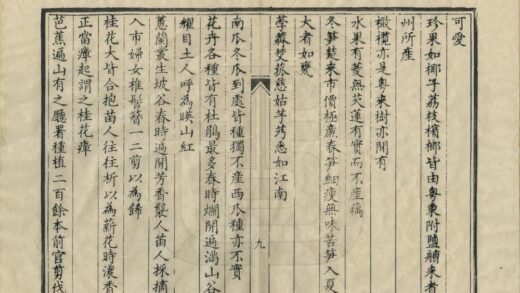 可愛
珍果如椰子荔枝檳榔皆由粵東附鹽艑來者
州所產
橄欖亦是粵來樹亦間有
水果有菱無芡蓮有實而不產藕
冬筍楚來市價極廉春筍細瘦無味苦筍入夏
大者如甕
荸薺茭菰慈姑芋艿悉如江南
九
南瓜冬瓜到處皆種獨不產西瓜種亦不實
花卉各種皆有杜鵑最多春時爛開遍滿山谷
耀目土人呼為暎山紅
蕙蘭叢生坡谷春時遍開芳香襲人苗人採摘
入市婦女椎髻簪一二剪以為飾
桂花大皆合抱苗人往往析以為薪花時濃香
正當瘴起謂之桂花瘴
芭蕉遍山有之廳署種植二百餘本前官剪伐